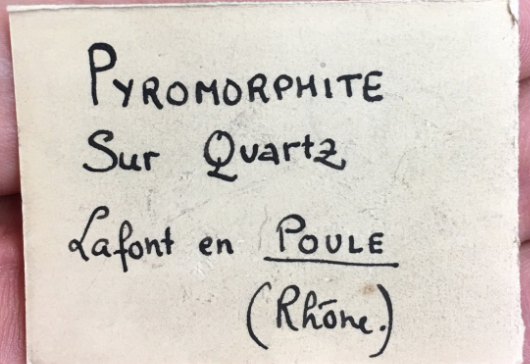 PYROMORPHITE
Sur Quartz
Lafont en POULE
(Rhône.)